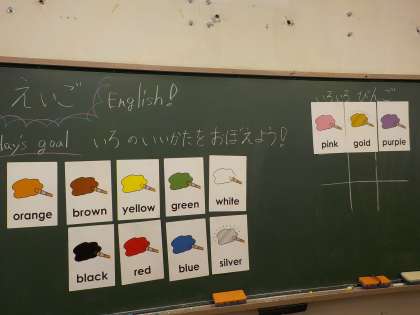 えいご English!
day's goal いろのいいかたをおぼえよう!
いろいろ びんご
pink gold purple
orange brown yellow green white
black red blue silver